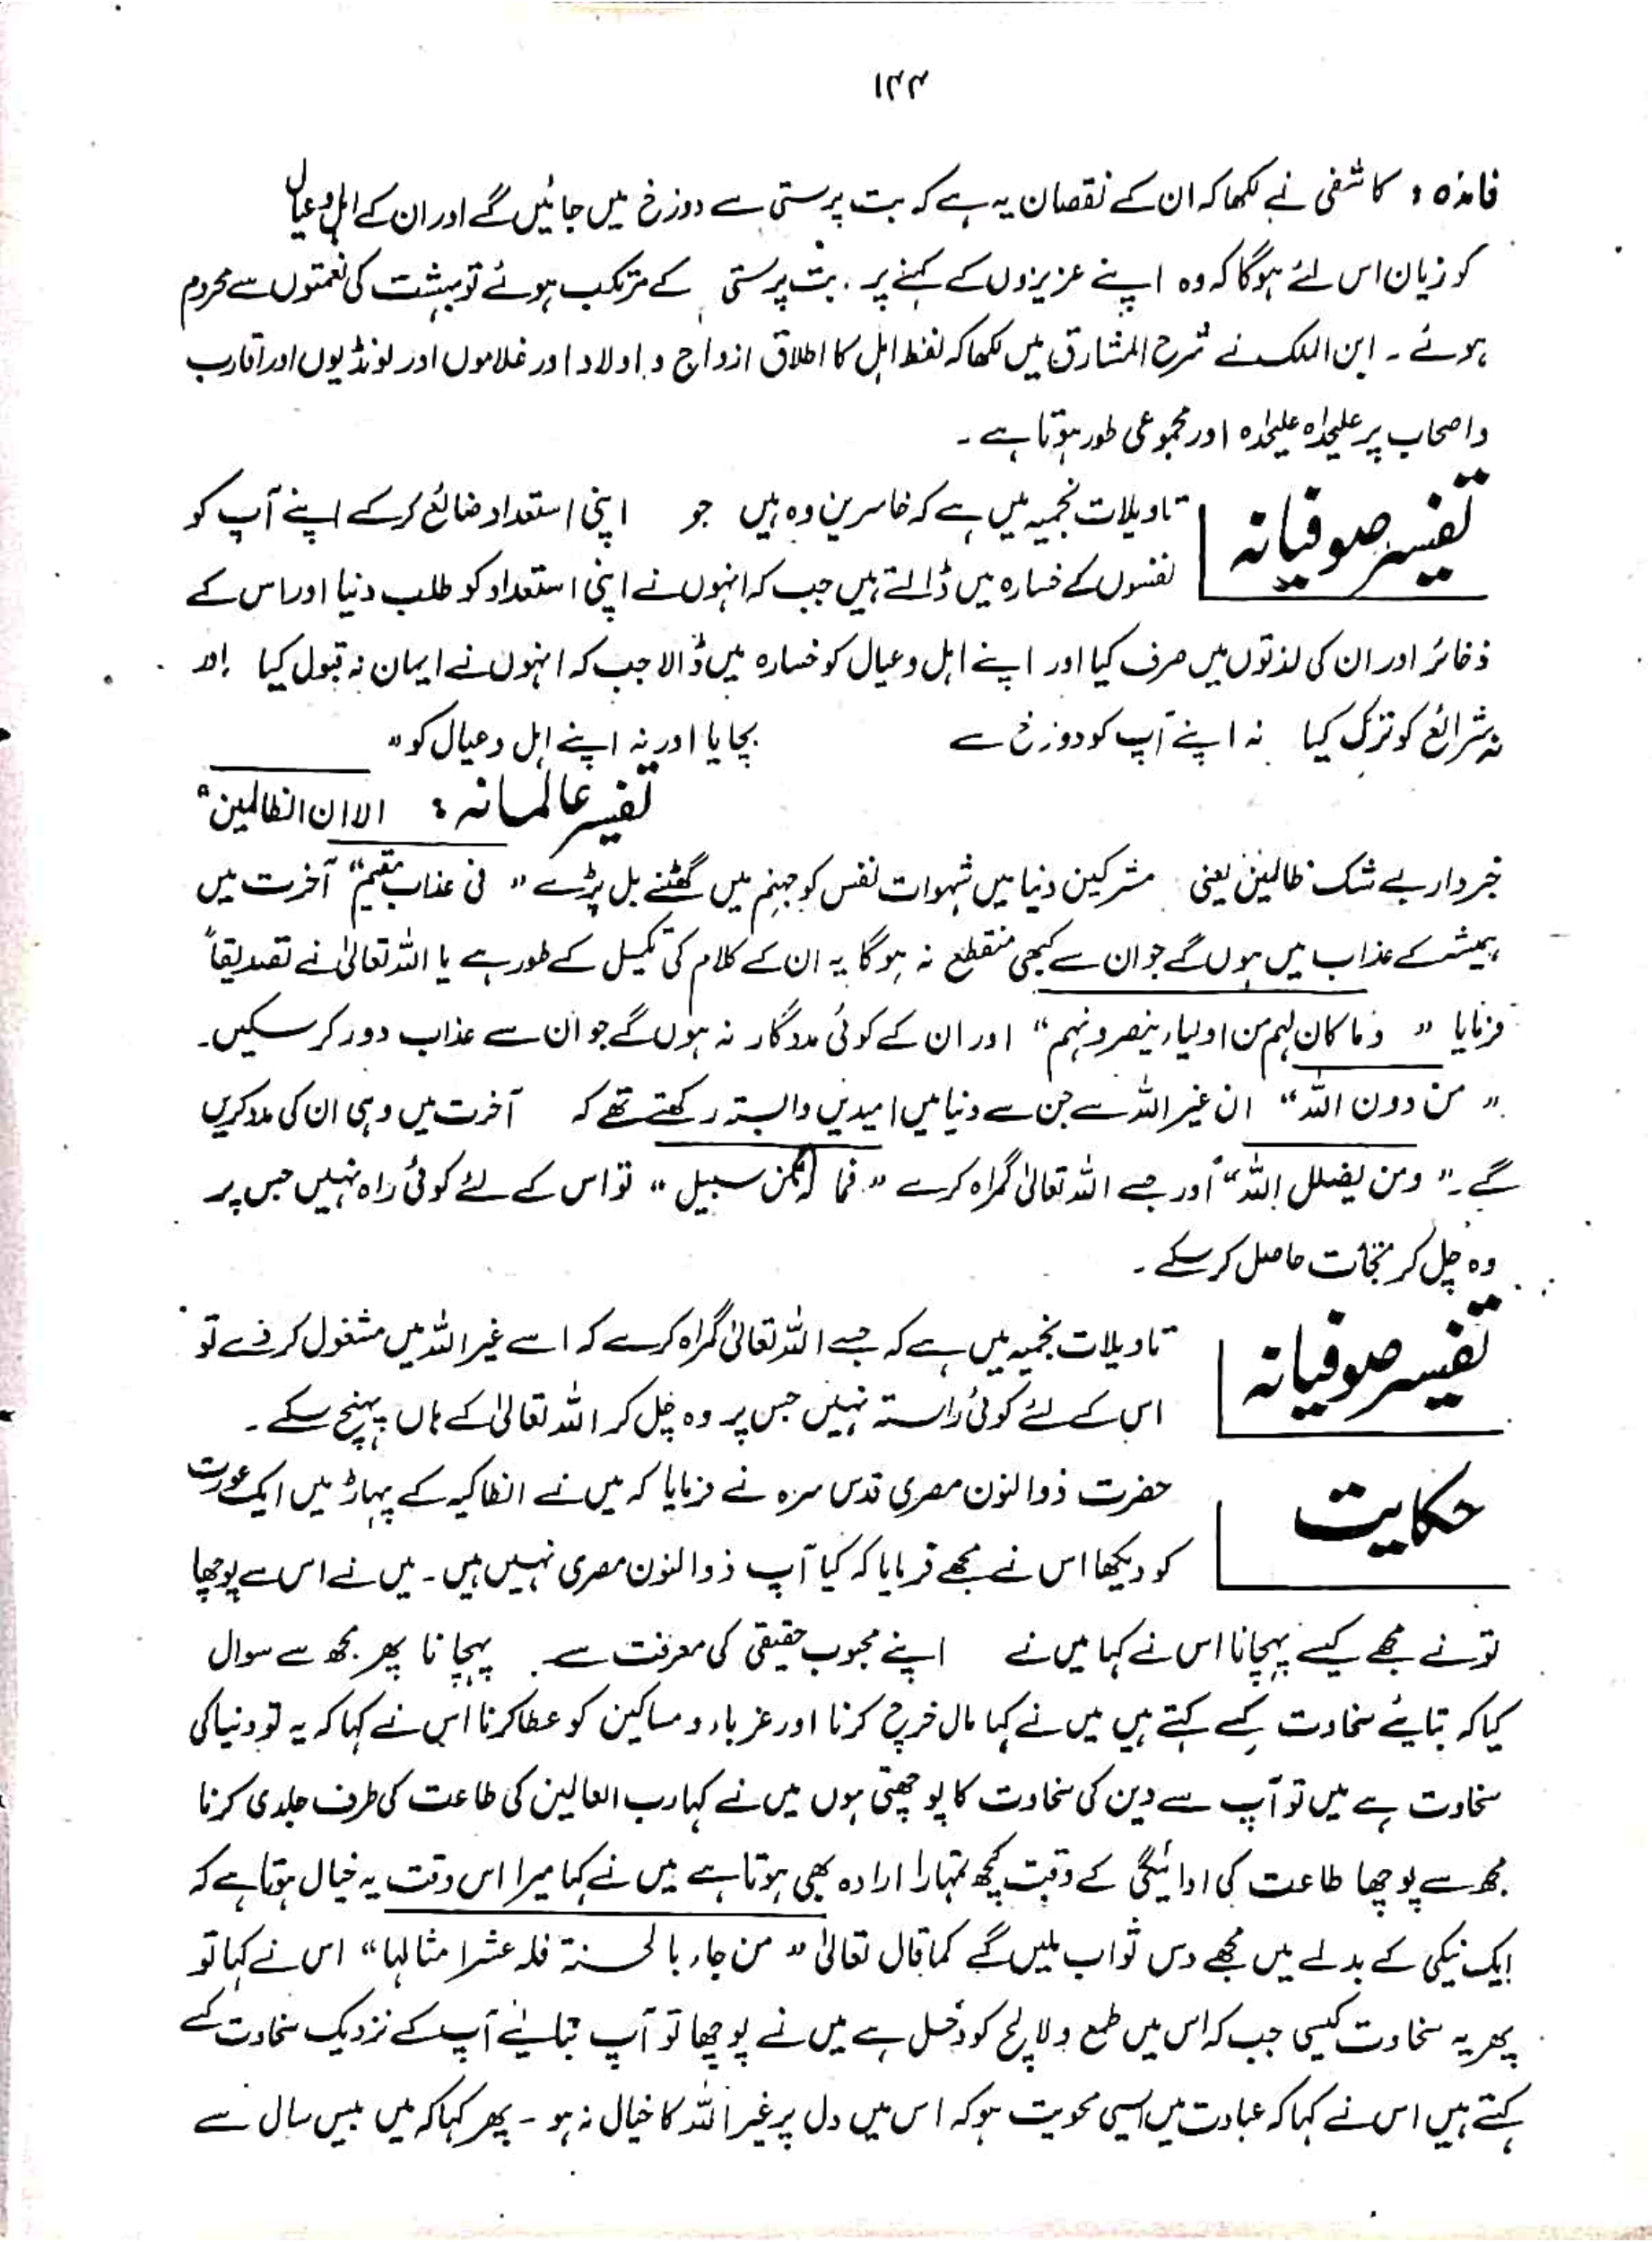 ۱۴۴
فائدہ : کاشفی نے لکھا کہ ان کے نقصان یہ ہے کہ بت پرستی سے دوزخ میں جائیں گے اور ان کے اہل و عیال
کو زیان اس لئے ہوگا کہ وہ اپنے عزیزوں کے کہنے پر بت پرستی کے مرتکب ہوئے تو بہشت کی نعمتوں سے محروم
ہوئے ۔ ابن الملک نے شرح المشارق میں لکھا کہ لفظ اہل کا اطلاق ازواج و اولاد اور غلاموں اور لونڈیوں اور اقارب
و اصحاب پر علیحدہ علیحدہ اور مجموعی طور ہوتا ہے ۔
تفسیر صوفیانہ
تاویلات نجمیہ میں ہے کہ خاسرین وہ ہیں جو اپنی استعداد ضائع کر کے اپنے آپ کو
نفسوں کے خسارہ میں ڈالتے ہیں جب کہ انہوں نے اپنی استعداد کو طلب دنیا اور اس کے
ذخائر اور ان کی لذتوں میں صرف کیا اور اپنے اہل و عیال کو خسارہ میں ڈالا جب کہ انہوں نے ایمان نہ قبول کیا اور
نہ شرائع کو ترک کیا نہ اپنے آپ کو دوزخ سے بچایا اور نہ اپنے اہل و عیال کو "
تفسیر عالمانہ : الا ان الظالمین "
خبردار بے شک ظالمین یعنی مشرکین دنیا میں شہوات نفس کو جہنم میں گھٹنے بل پڑے " فی عذاب مقیم " آخرت میں
ہمیشہ کے عذاب میں ہوں گے جو ان سے کبھی منقطع نہ ہوگا یہ ان کے کلام کی تکمیل کے طور ہے یا اللہ تعالیٰ نے تصدیقاً
فرمایا " وما کان لہم من اولیاء ینصرونہم " اور ان کے کوئی مددگار نہ ہوں گے جو ان سے عذاب دور کر سکیں ۔
" من دون اللہ " ان غیر اللہ سے جن سے دنیا میں امیدیں وابستہ رکھتے تھے کہ آخرت میں وہی ان کی مدد کریں
گے ۔ " ومن یضلل اللہ " اور جسے اللہ تعالیٰ گمراہ کرے " فما لہ من سبیل " تو اس کے لئے کوئی راہ نہیں جس پر
وہ چل کر نجات حاصل کر سکے ۔
تفسیر صوفیانہ
تاویلات نجمیہ میں ہے کہ جسے اللہ تعالیٰ گمراہ کرے کہ اسے غیر اللہ میں مشغول کر دے تو
اس کے لئے کوئی راستہ نہیں جس پر وہ چل کر اللہ تعالیٰ کے ہاں پہنچ سکے ۔
حکایت
حضرت ذوالنون مصری قدس سرہ نے فرمایا کہ میں نے انطاکیہ کے پہاڑ میں ایک عورت
کو دیکھا اس نے مجھے فرمایا کہ کیا آپ ذوالنون مصری نہیں ہیں ۔ میں نے اس سے پوچھا
تو نے مجھے کیسے پہچانا اس نے کہا میں نے اپنے محبوب حقیقی کی معرفت سے پہچانا پھر مجھ سے سوال
کیا کہ بتایئے سخاوت کسے کہتے ہیں میں نے کہا مال خرچ کرنا اور غرباء و مساکین کو عطا کرنا اس نے کہا کہ یہ تو دنیا کی
سخاوت ہے میں تو آپ سے دین کی سخاوت کا پوچھتی ہوں میں نے کہا رب العالمین کی طاعت کی طرف جلدی کرنا
مجھ سے پوچھا طاعت کی ادائیگی کے وقت کچھ تمہارا ارادہ بھی ہوتا ہے میں نے کہا میرا اس وقت یہ خیال ہوتا ہے کہ
ایک نیکی کے بدلے میں مجھے دس ثواب ملیں گے کما قال تعالیٰ " من جاء بالحسنۃ فلہ عشر امثالہا " اس نے کہا تو
پھر یہ سخاوت کیسی جب کہ اس میں طمع و لالچ کو دخل ہے میں نے پوچھا تو آپ بتایئے آپ کے نزدیک سخاوت کسے
کہتے ہیں اس نے کہا کہ عبادت میں ایسی محویت ہو کہ اس میں دل پر غیر اللہ کا خیال نہ ہو ۔ پھر کہا کہ میں بیس سال سے